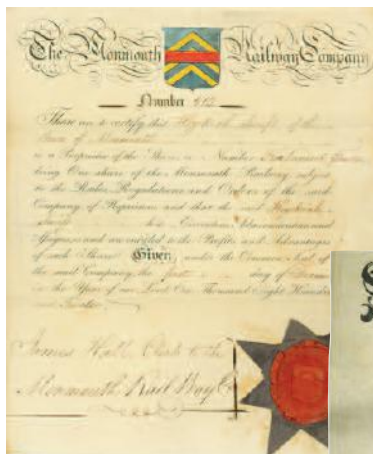 The Monmouth Railway Company
Number
These are to certify that of the
Town of Monmouth
is a Proprietor of the Share or Number
being One share of the Monmouth Railway subject
to the Rules Regulations and Orders of the said
Company of Proprietors and that the said
his Executors Administrators and
Assignees and are entitled to the Profits and Advantages
of such Share Given under the Common Seal of
the said Company the day of
in the Year of our Lord One Thousand Eight Hundred
and Twelve
James Hall Clerk to the
Monmouth Rail Way Co